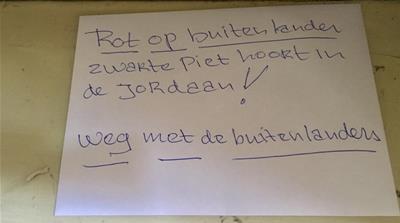 Rot op buitenlander
zwarte Piet hoort in
de Jordaan!
weg met de buitenlanders